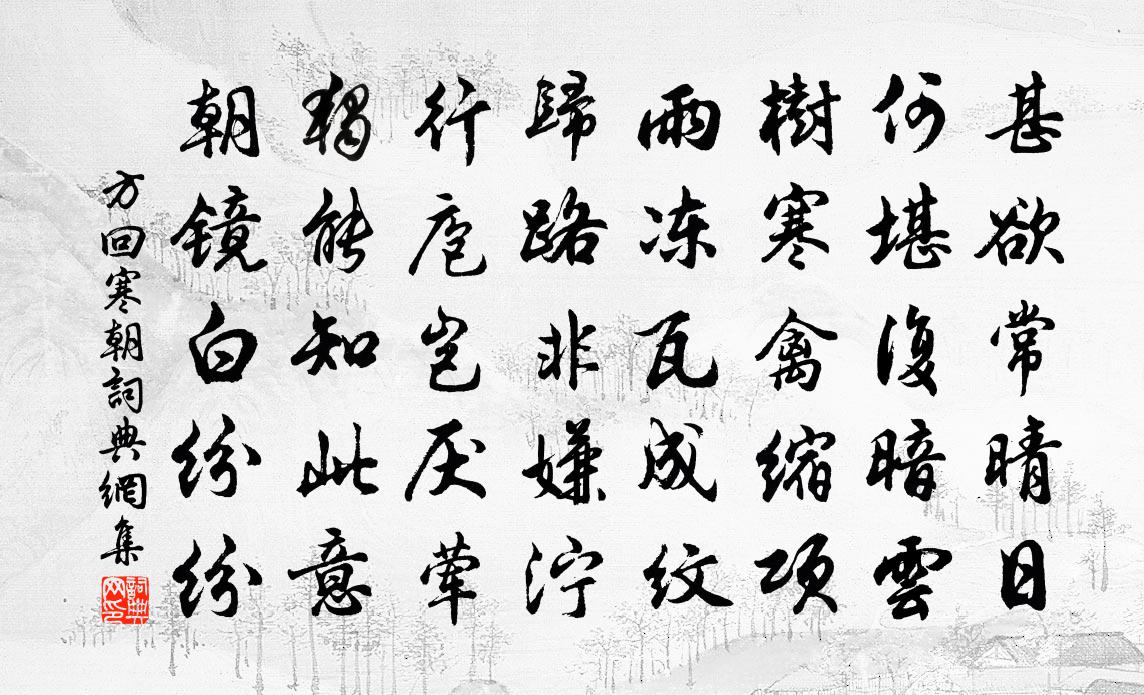 甚欲常晴日
何堪復暗雲
樹寒禽縮項
雨冻瓦成紋
歸路非嫌泞
行庖岂厌荤
獨能知此意
朝镜白纷纷
方回寒朝詞典網集
詞典网印